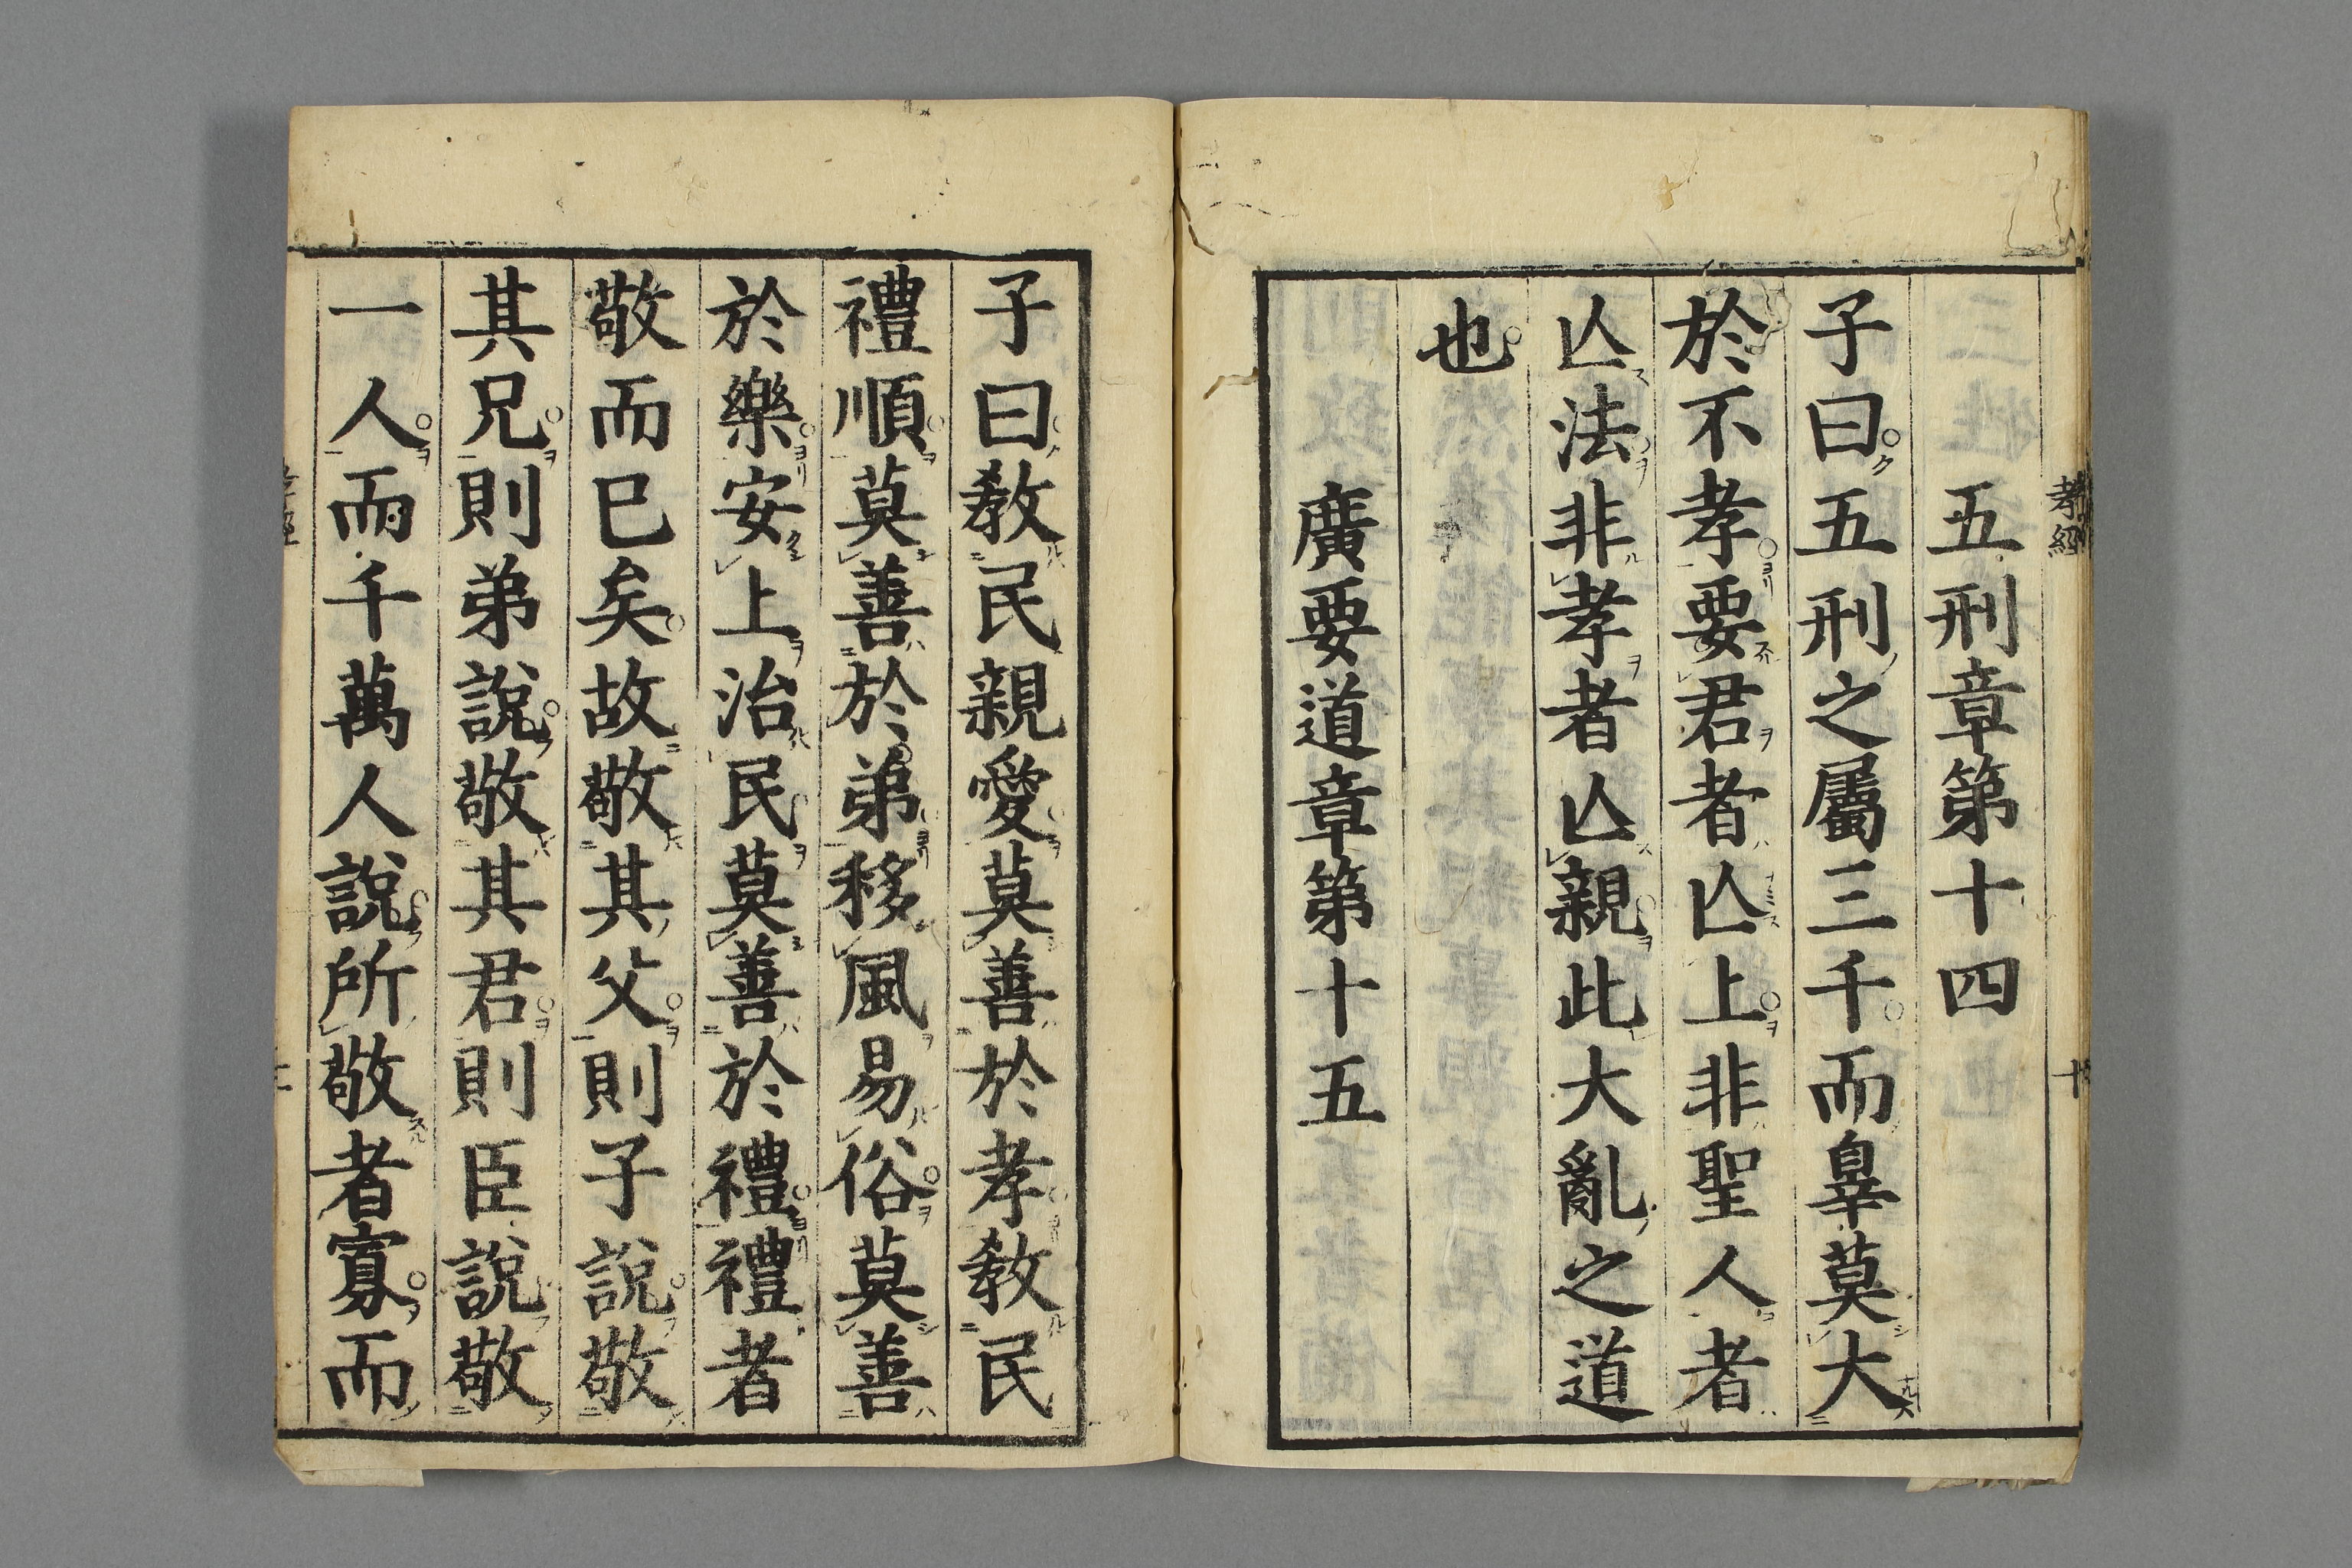 五刑章第十四
子曰五刑之屬三千而辠莫大
於不孝要君者亾上非聖人者
亾法非孝者亾親此大亂之道
也
廣要道章第十五
子曰敎民親愛莫善於孝敎民
禮順莫善於弟移風易俗莫善
於樂安上治民莫善於禮禮者
敬而已矣故敬其父則子說敬
其兄則弟說敬其君則臣說敬
一人而千萬人說所敬者寡而
孝經
十